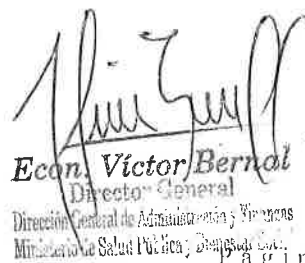 Econ. Víctor Bernal
Director General
Dirección General de Administración y Finanzas
Ministerio de Salud Pública y Bienestar Soc.
P á g i n